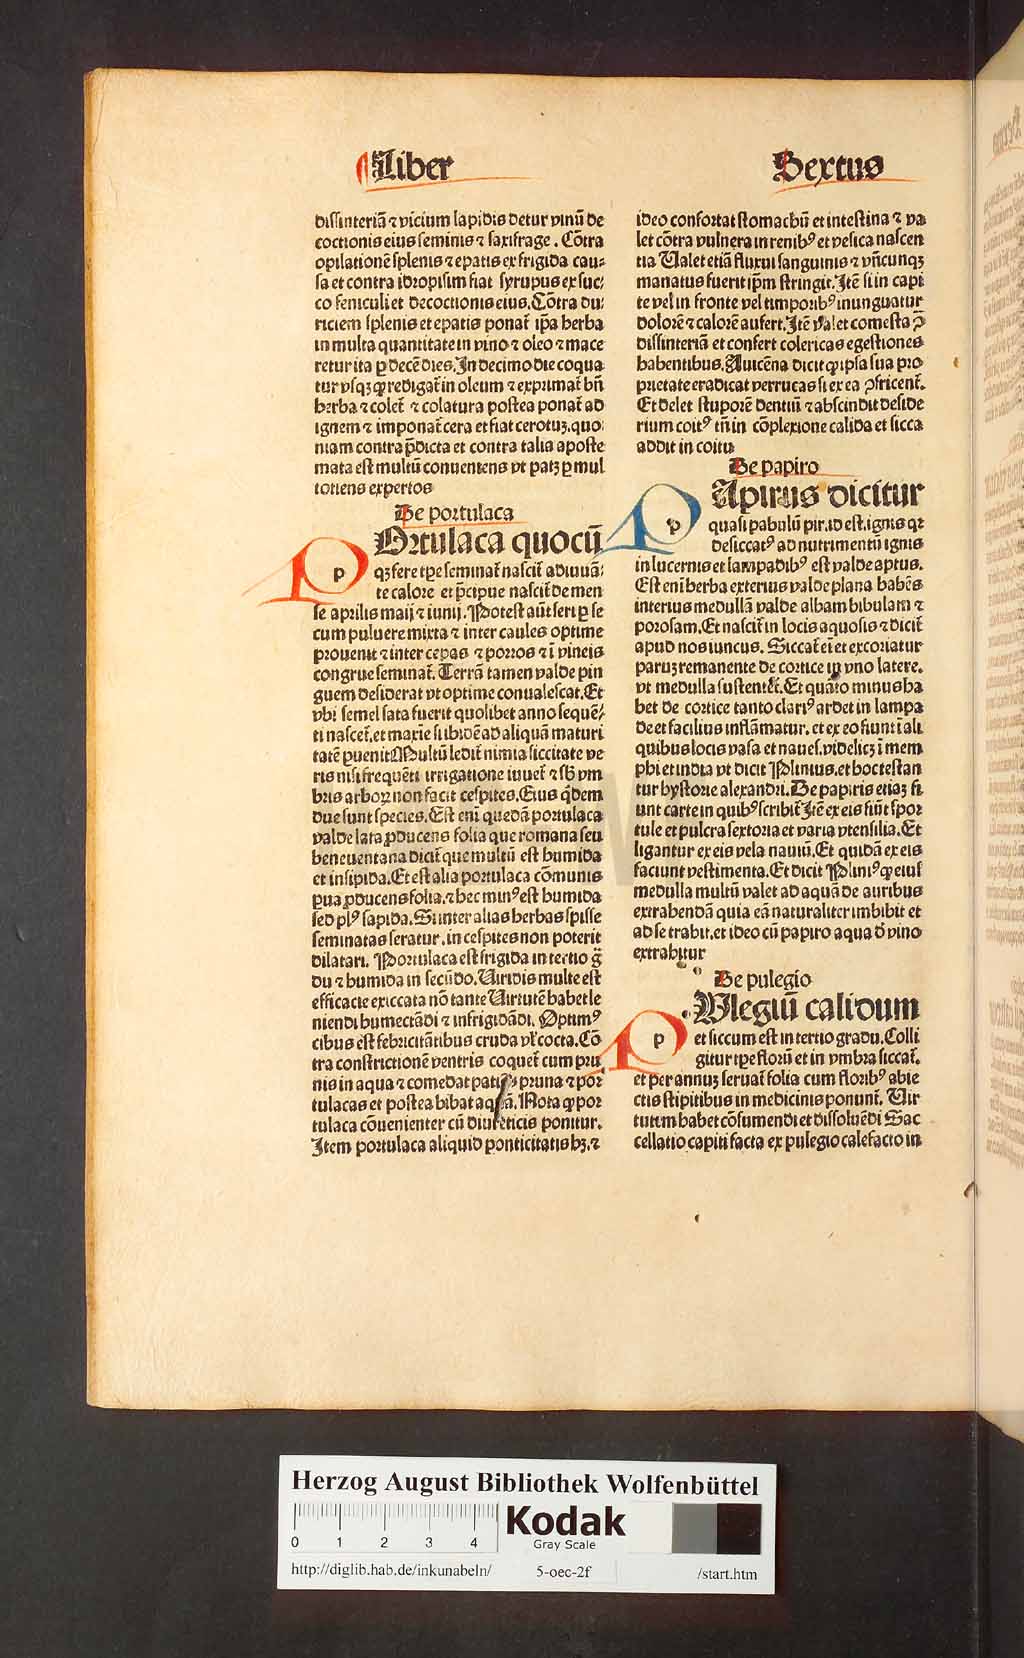 Liber
Sextus
dissinteriā ⁊ vicium lapidis detur vinū de
coctionis eius seminis ⁊ saxifrage. Cōtra
opilationē splenis ⁊ epatis ex frigida cau⸗
sa et contra idropisim fiat syrupus ex suc⸗
co feniculi et decoctionis eius. Cōtra du⸗
riciem splenis et epatis ponat̄ ip̄a herba
in multa quantitate in vino ⁊ oleo ⁊ mace
retur ita ꝑ decē dies. In decimo die coqua
tur vsqꝫ ꝙ redigat̄ in oleum ⁊ exprimat̄ bn̄
herba ⁊ colet̄ ⁊ colatura postea ponat̄ ad
ignem ⁊ imponat̄ cera et fiat cerotuꝫ. quo⸗
niam contra p̄dicta et contra talia aposte
mata est multū conueniens vt patꝫ ꝑ mul
totiens expertos
De portulaca
p
Ortulaca quocū
qꝫ fere tp̄e seminat̄ nascit̄ adiuuā⸗
te calore et p̄cipue nascit̄ de men
se aprilis maij ⁊ iunij. Potest aūt seri ꝑ se
cum puluere mixta ⁊ inter caules optime
prouenit ⁊ inter cepas ⁊ porros ⁊ ī vineis
congrue seminat̄. Terrā tamen valde pin
guem desiderat vt optime conualescat. Et
vbi semel sata fuerit quolibet anno sequē⸗
ti nascet̄. et maxīe si ibidē ad aliquā maturi
tatē ꝑuenit. Multū ledit̄ nimia siccitate ve
ris nisi frequēti irrigatione iuuet̄ ⁊ sb̄ vm
bris arboꝝ non facit cespites. Eius q̄dem
due sunt species. Est eni quedā portulaca
valde lata ꝓducens folia que romana seu
beneuentana dicit̄ que multū est humida
et insipida. Et est alia portulaca cōmunis
ꝑua ꝓducens folia. ⁊ hec minꝰ est humida
sed plꝰ sapida. Si inter alias herbas spisse
seminatas seratur. in cespites non poterit
dilatari. Portulaca est frigida in tertio g̃
du ⁊ humida in secūdo. Viridis multe est
efficacie exiccata nō tante Virtutē habet le
niendi humectādi ⁊ infrigidādi. Optimꝰ
cibus est febricitātibus cruda vl̓ cocta. Cō
tra constrictionē ventris coquet̄ cum pru
nis in aqua ⁊ comedat pruna ⁊ por
tulacas et postea bibat aquā. Nota ꝙ por
tulaca cōuenienter cū diureticis ponitur.
Item portulaca aliquid ponticitatis hꝫ. ⁊
ideo confortat stomachū et intestina ⁊ va
let cōtra vulnera in renibꝰ et vesica nascen
tia Valet etiā fluxui sanguinis ⁊ vn̄cunqꝫ
manatus fuerit ip̄m stringit. Itē si in capi
te vel in fronte vel timporibꝰ inunguatur
dolorē ⁊ calorē aufert. Itē valet comesta ꝯ̄
dissinteriā et confert colericas egestiones
habentibus. Auicēna dicit ꝙ ipsa sua pro
prietate eradicat verrucas si ex ea ꝯfricent̄.
Et delet stuporē dentiū ⁊ abscindit deside
rium coitꝰ tn̄ in cōplexione calida et sicca
addit in coitu
De papiro
p
Apirus dicitur
quasi pabulū pir. id est. ignis qꝛ
desiccatꝰ ad nutrimentū ignis
in lucernis et lampadibꝰ est valde aptus.
Est eni herba exterius valde plana habēs
interius medullā valde albam bibulam ⁊
porosam. Et nascit̄ in locis aquosis ⁊ dicit̄
apud nos iuncus. Siccat̄ ei et excoriatur
paruꝫ remanente de cortice in vno latere.
vt medulla sustentet̄. Et quāto minus ha
bet de cortice tanto clariꝰ ardet in lampa
de et facilius inflāmatur. et ex eo fiunt ī ali
quibus locis vasa et naues. videlicꝫ ī mem
phi et india vt dicit Plinius. et hoc testan
tur hystorie alexandri. De papiris etiaꝫ fi
unt carte in quibꝰ scribit̄ Itē ex eis fiūt spor
tule et pulcra sextoria et varia vtensilia. Et
ligantur ex eis vela nauiū. Et quidā ex eis
faciunt vestimenta. Et dicit Pliniꝰ ꝙ eius
medulla multū valet ad aquā de auribus
extrahendā quia eā naturaliter imbibit et
ad se trahit. et ideo cū papiro aqua d̓ vino
extrahitur
De pulegio
p
Vlegiū calidum
et siccum est in tertio gradu. Colli
gitur tp̄e florū et in vmbra siccat̄.
et per annuꝫ seruat̄ folia cum floribꝰ abie
ctis stipitibus in medicinis ponunt̄. Vir
tutem habet cōsumendi et dissoluēdi Sac
cellatio capiti facta ex pulegio calefacto in
Herzog August Bibliothek Wolfenbüttel
0 1 2 3 4
Kodak
Gray Scale
http://diglib.hab.de/inkunabeln/ 5-oec-2f /start.htm